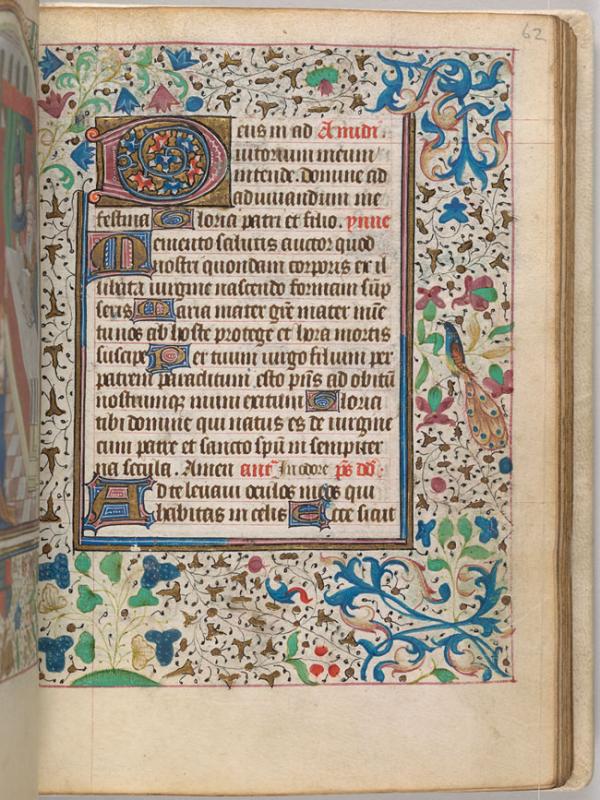 62
Deus in ad A midi
iutorium meum
intende. domine ad
adiuuandum me
festina Gloria patri et filio. ymne
Memento salutis auctor quod
nostri quondam corporis ex il
libata uirgine nascendo formam sūp
seris Maria mater gre mater mūe
tu nos ab hoste protege et hora mortis
suscipe Per tuum uirgo filium per
patrem paraclitum. esto pñs ad obitū
nostrumqȝ muni exitum Gloria
tibi domine qui natus es de uirgine
cum patre et sancto spū in sempiter
na secula. Amen ant In odore ps dd
Ad te leuaui oculos meos qui
habitas in celis Ecce sicut